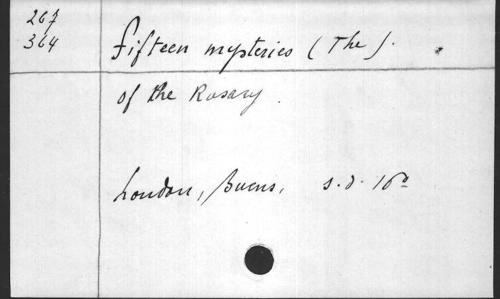 267
364
Fifteen mysteries (The).
of the Rosary.
London, Burns, s.d. 16º